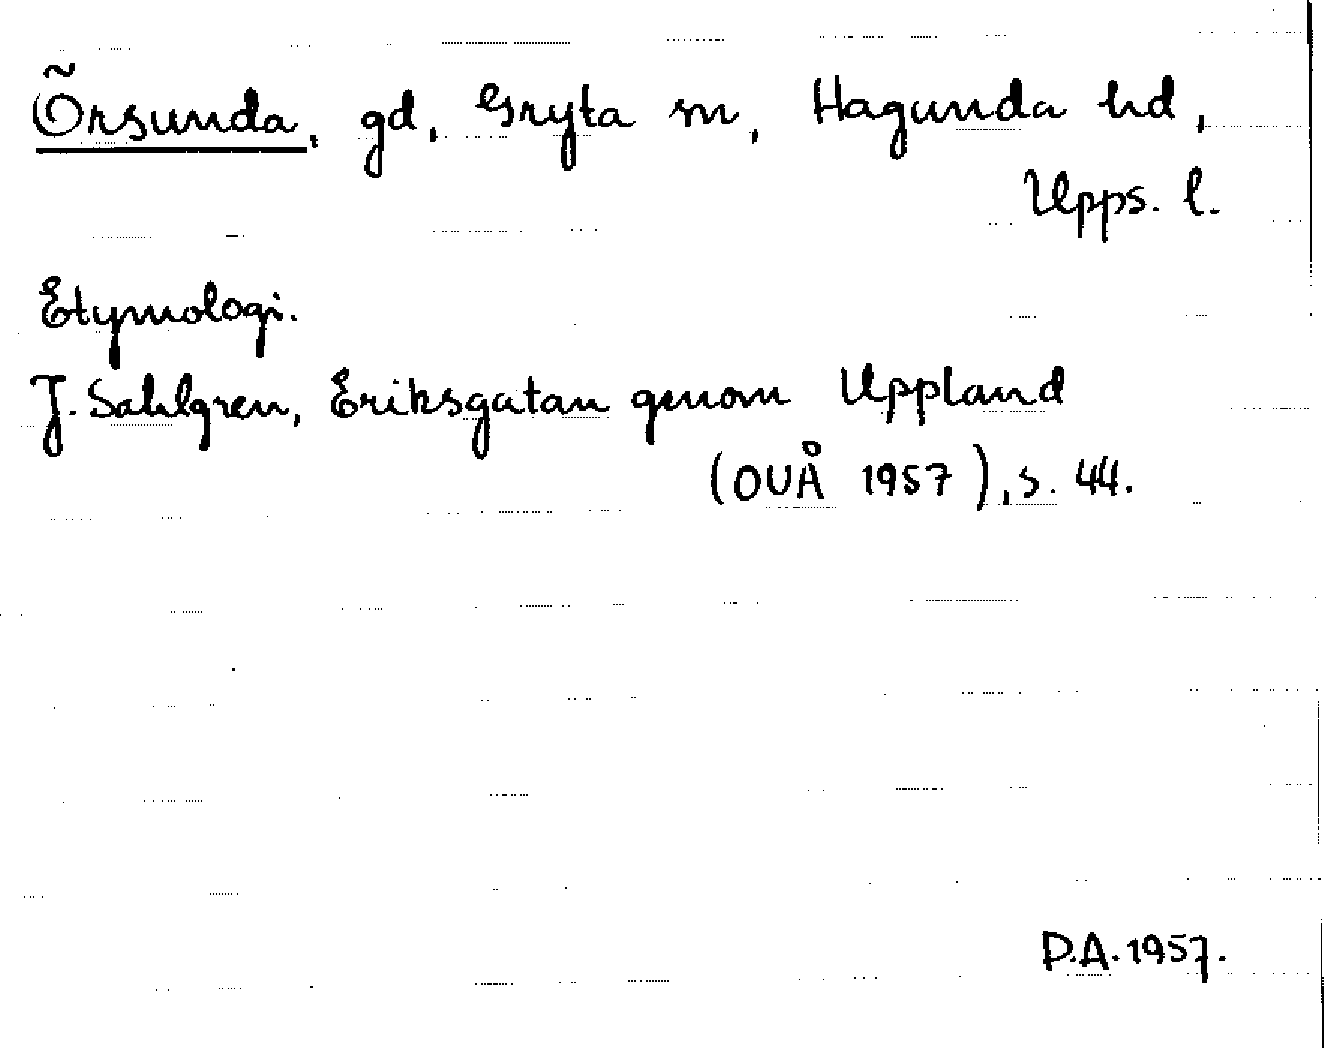 Örsunda, gd, Gryta sn, Hagunda hd,
Upps. l.
Etymologi.
J. Sahlgren, Eriksgatan genom Uppland
(OUÅ 1957), s. 44.
P.A. 1957.